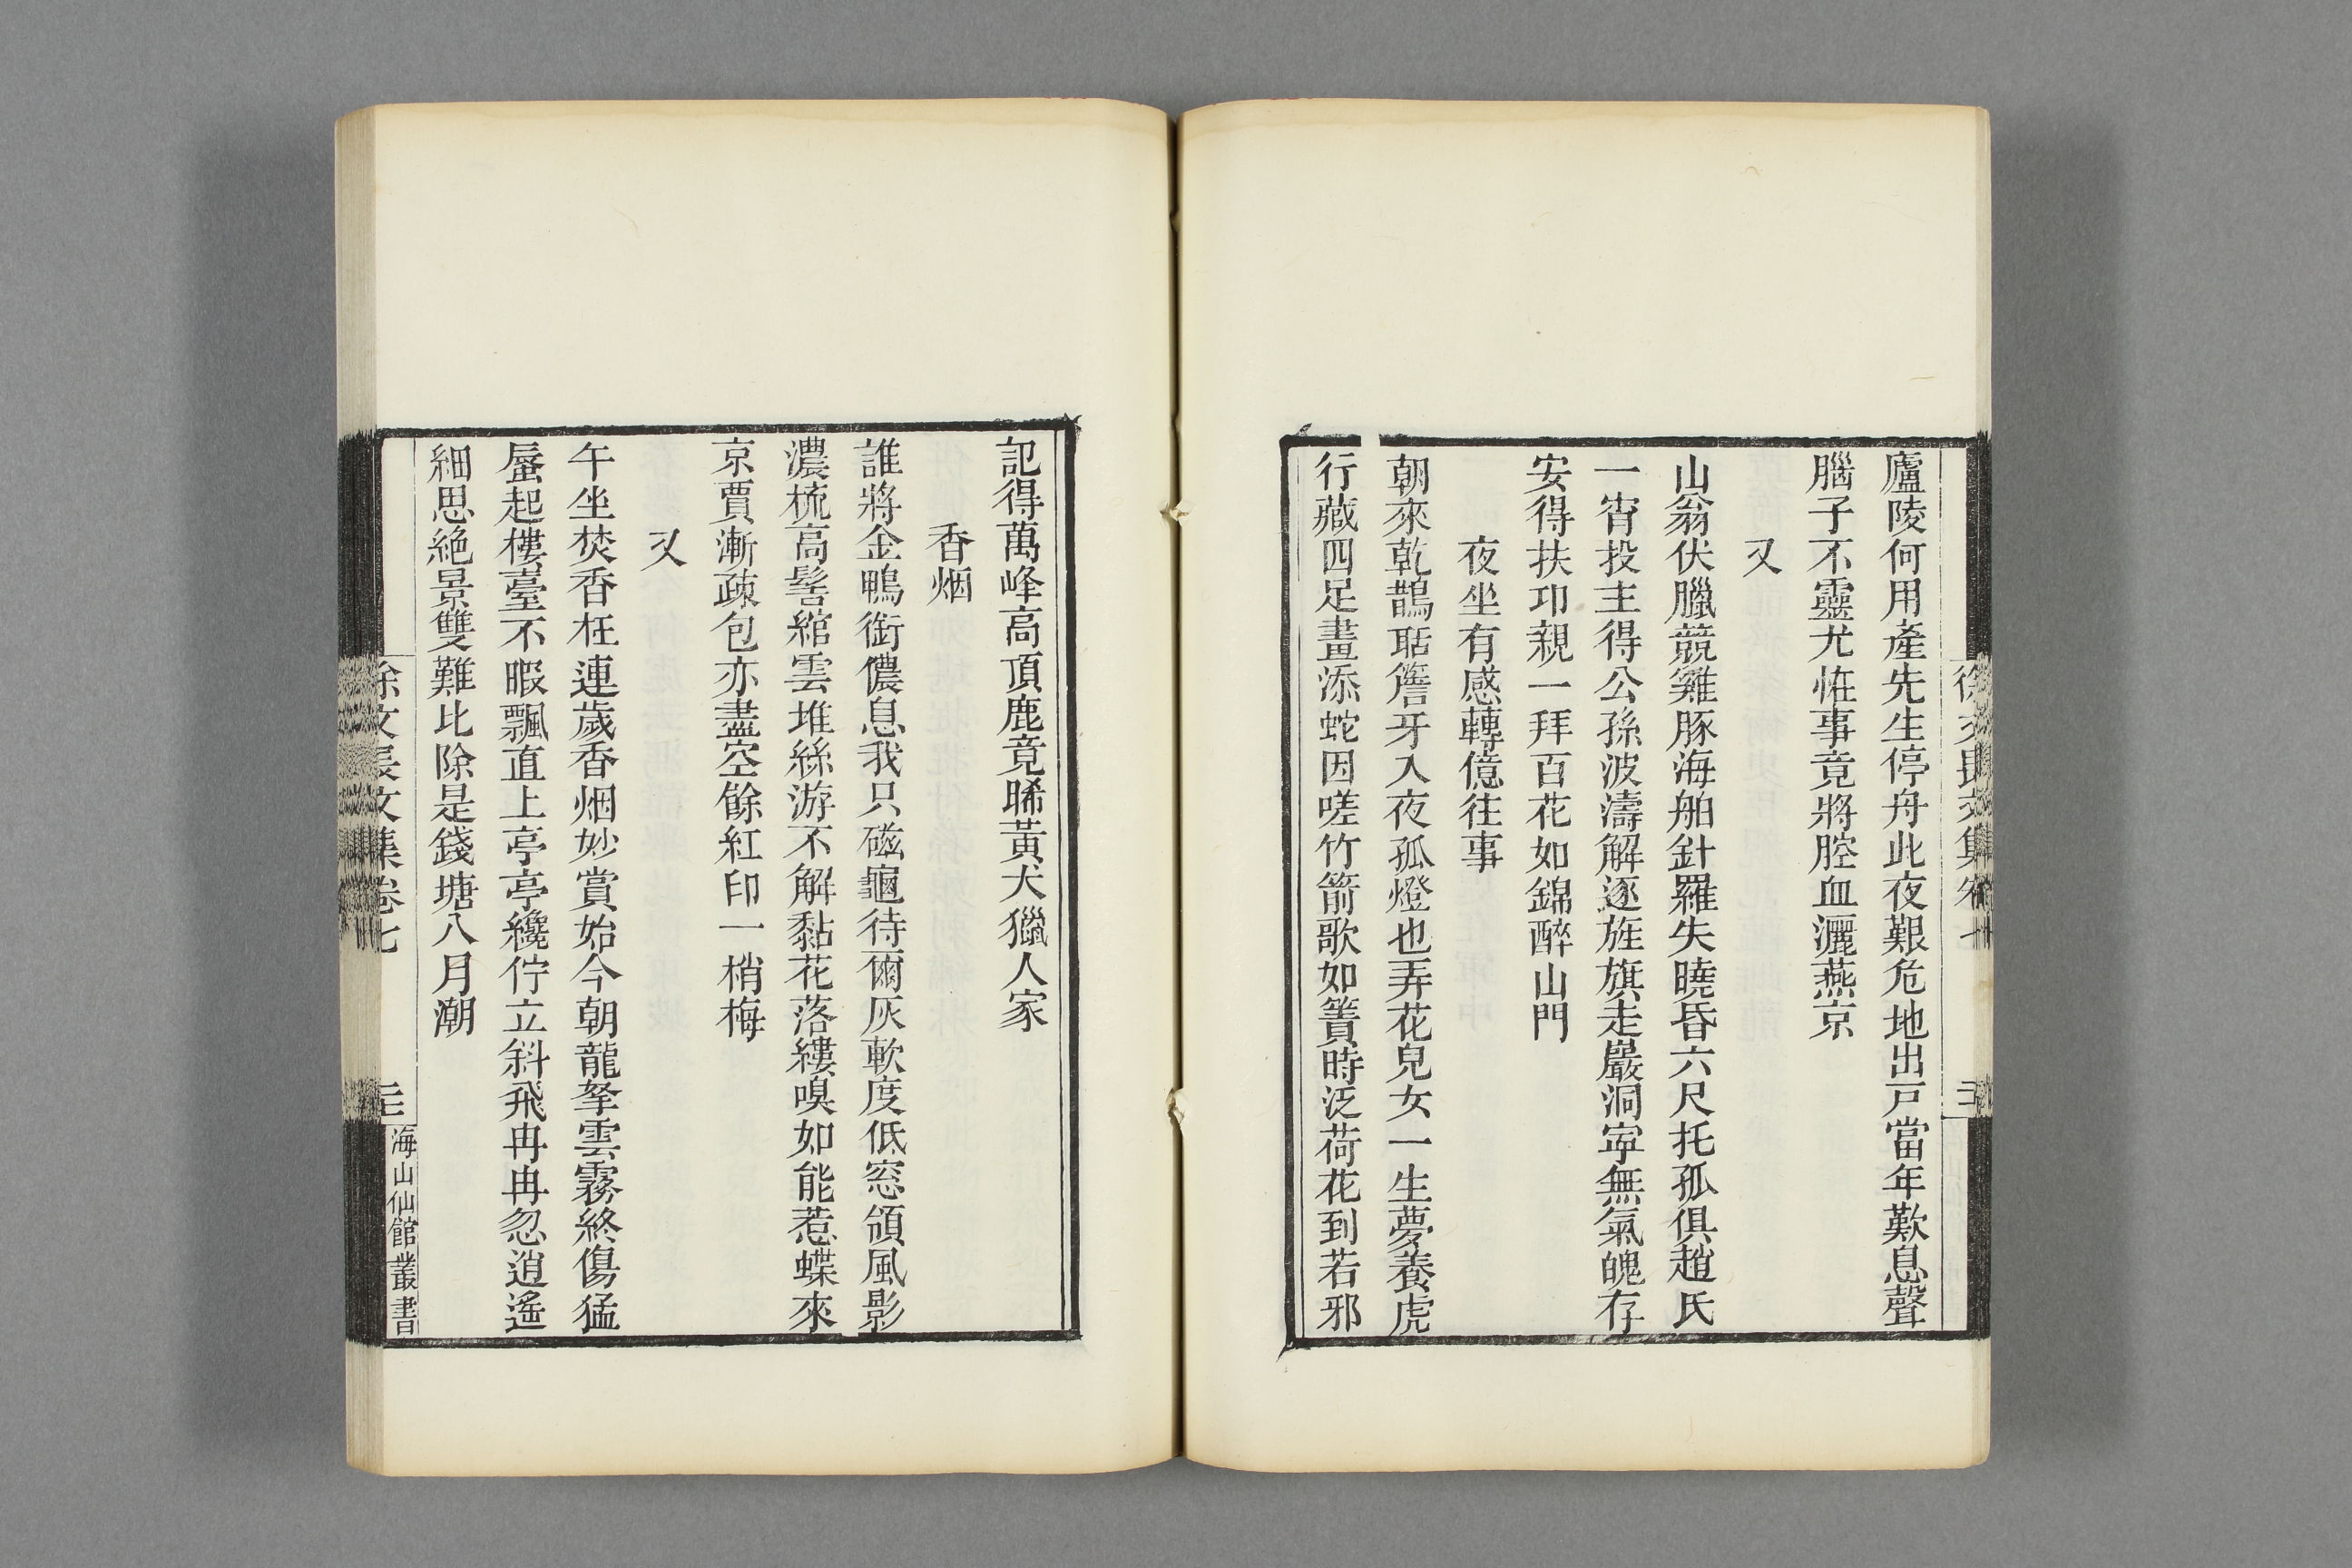 廬陵何用產先生停舟此夜艱危地出戸當年歎息聲
腦子不靈尤恠事竟將腔血灑燕京
又
山翁伏臘競雞豚海舶針羅失曉昏六尺托孤俱趙氏
一宵投主得公孫波濤解逐旌旗走巖洞寜無氣魄存
安得扶卭親一拜百花如錦醉山門
夜坐有感轉億往事
朝來乾鵲聒簷牙入夜孤燈也弄花兒女一生夢養虎
行藏四足畫添蛇因嗟竹箭歌如簀時泛荷花到若邪
記得萬峰高頂鹿竟晞黃犬獵人家
香烟
誰將金鴨銜儂息我只磁龜待爾灰軟度低窓領風影
濃梳高髻綰雲堆絲游不解黏花落縷嗅如能惹蝶來
京賈漸疎包亦盡空餘紅印一梢梅
又
午坐焚香枉連歲香烟妙賞始今朝龍拏雲霧終傷猛
蜃起樓臺不暇飄直上亭亭纔佇立斜飛冉冉忽逍遙
細思絶景雙難比除是錢塘八月潮
徐文長文集卷七
海山仙館叢書